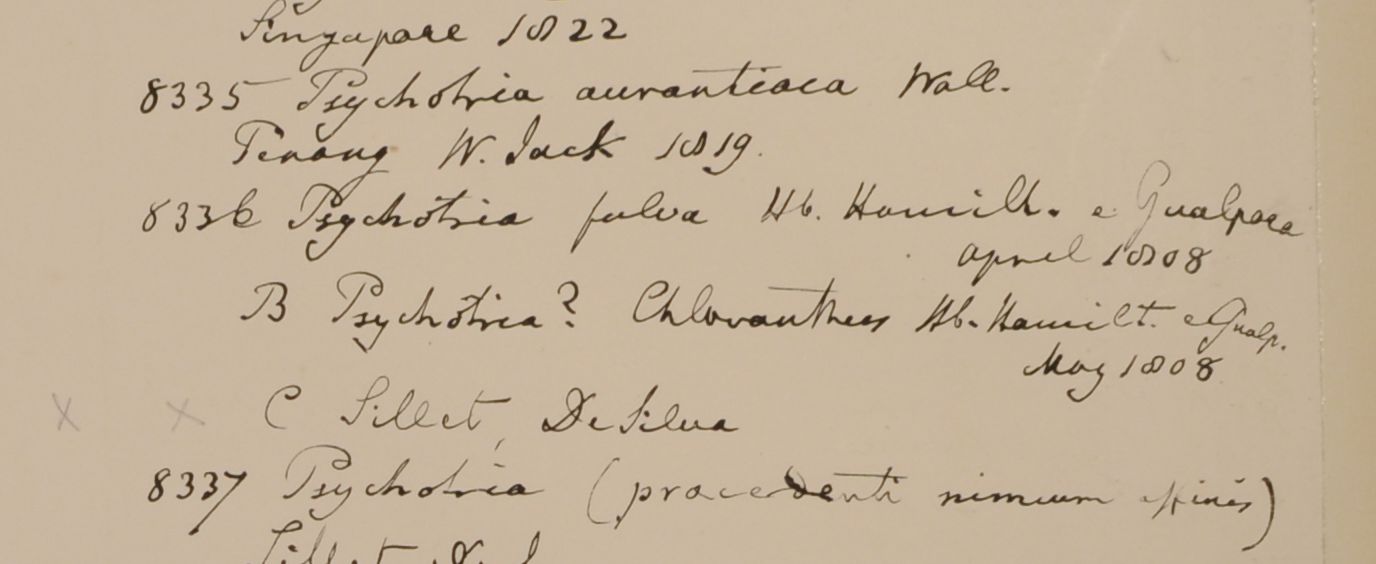 Singapore 1822
8335 Psychotria aurantiaca Wall.
Penang W. Jack 1819.
8336 Psychotria fulva Hb. Hamilt. e Gualpara
april 1808
B Psychotria? Chloranthus Hb. Hamilt. e Gualp.
May 1808
X X C Sillet, De Silva
8337 Psychotria (precedenti nimium affinis)
Sillet